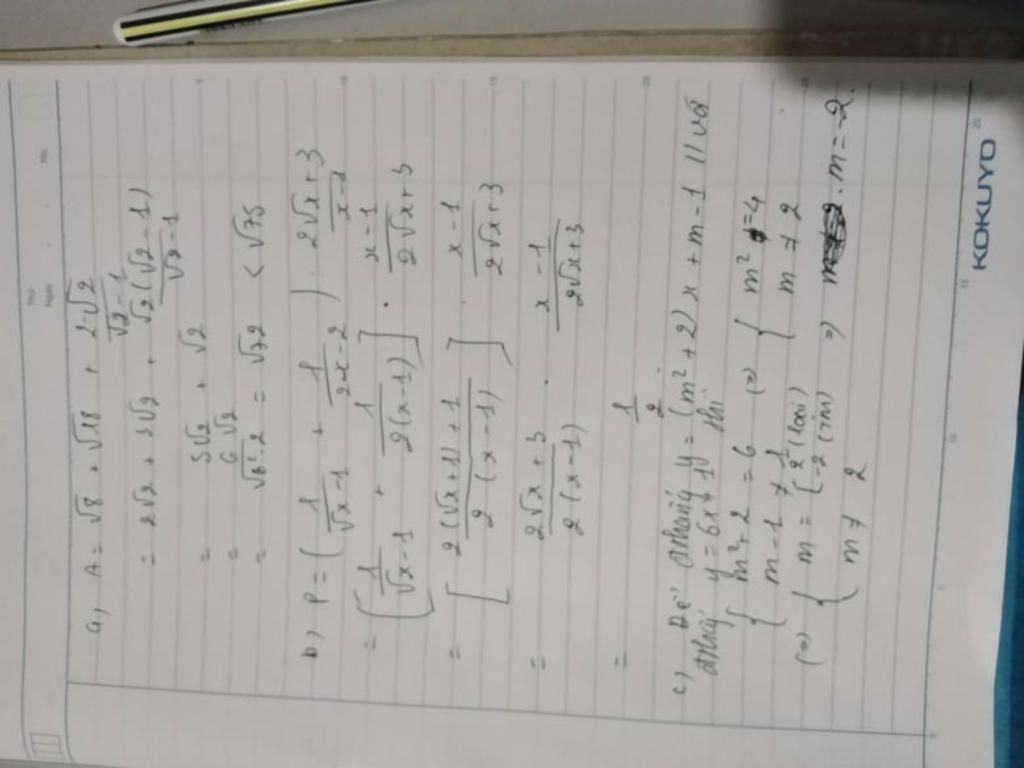 No.
a, A = √8 + √18 + 2-√2 / √2-1
= 2√2 + 3√2 + √2(√2-1) / √2-1
= 5√2 + √2
= 6√2
= √6².2 = √72 < √75
b, P = ( 1/√x-1 + 1/2x-2 ) : 2√x+3 / x-1
= [ 1/√x-1 + 1/2(x-1) ] . x-1 / 2√x+3
= [ 2(√x+1)+1 / 2(x-1) ] . x-1 / 2√x+3
= 2√x+3 / 2(x-1) . x-1 / 2√x+3
= 1/2
c) Để đthẳng y = (m²+2)x + m-1 // và
đthẳng y = 6x+1 thì
{ m²+2 = 6 (=) { m² = 4
m-1 ≠ 1 m ≠ 2
(=) { m = [ 2 (loại) -2 (T/m) => m = -2.
m ≠ 2
KOKUYO